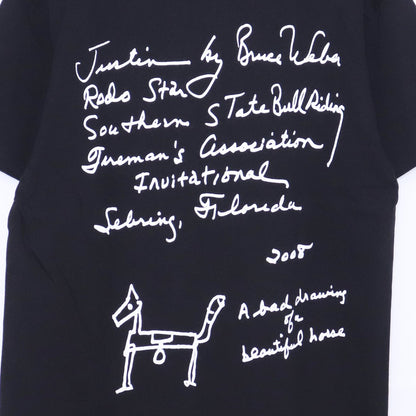 Justin by Bruce Weber
Rodo Star
Southern State Bull Riding
Fireman's Association
Invitational
Sebring, Florida
2008
A bad drawing
of a
beautiful horse